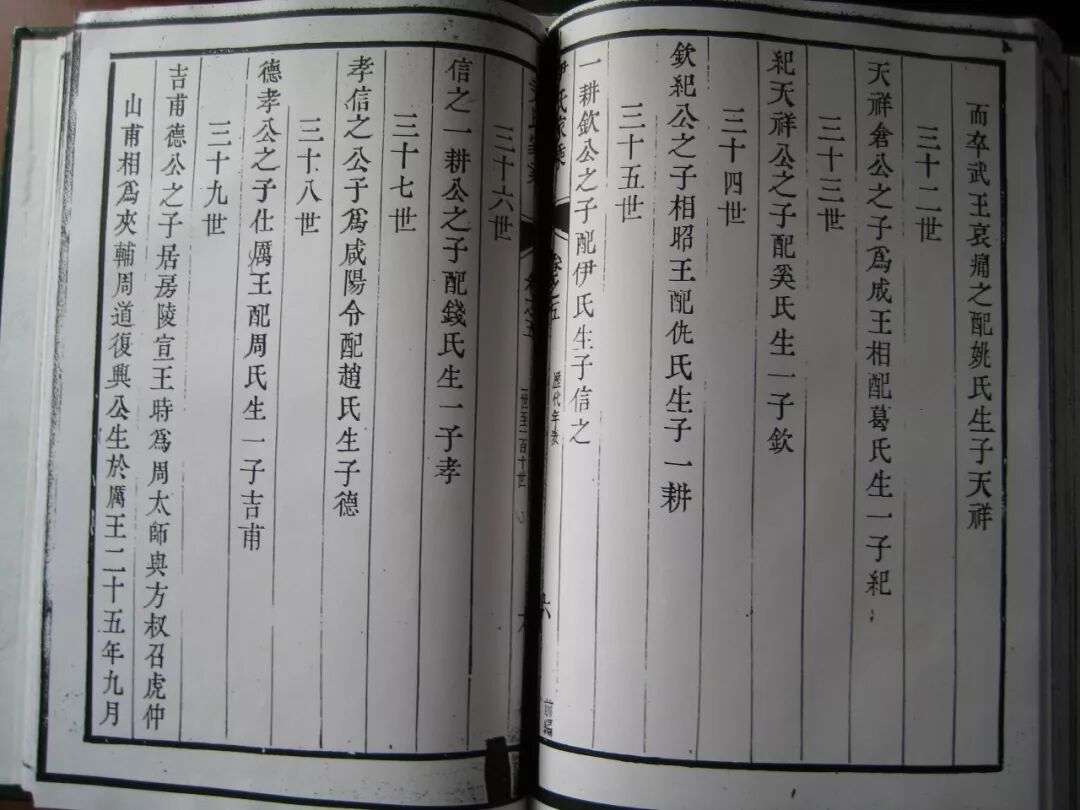 而卒武王哀痛之配姚氏生子天祥
三十二世
天祥倉公之子爲成王相配葛氏生一子紀
三十三世
紀天祥公之子配奚氏生一子欽
三十四世
欽紀公之子相昭王配仇氏生子一耕
三十五世
一耕欽公之子配伊氏生子信之
氏家乘
卷之五
歷代年表
六
前編
卷之五
一世至一百十世
三十六世
信之一耕公之子配錢氏生一子孝
三十七世
孝信之公子爲咸陽令配趙氏生子德
三十八世
德孝公之子仕厲王配周氏生一子吉甫
三十九世
吉甫德公之子居房陵宣王時爲周太師與方叔召虎仲
山甫相爲夾輔周道復興公生於厲王二十五年九月